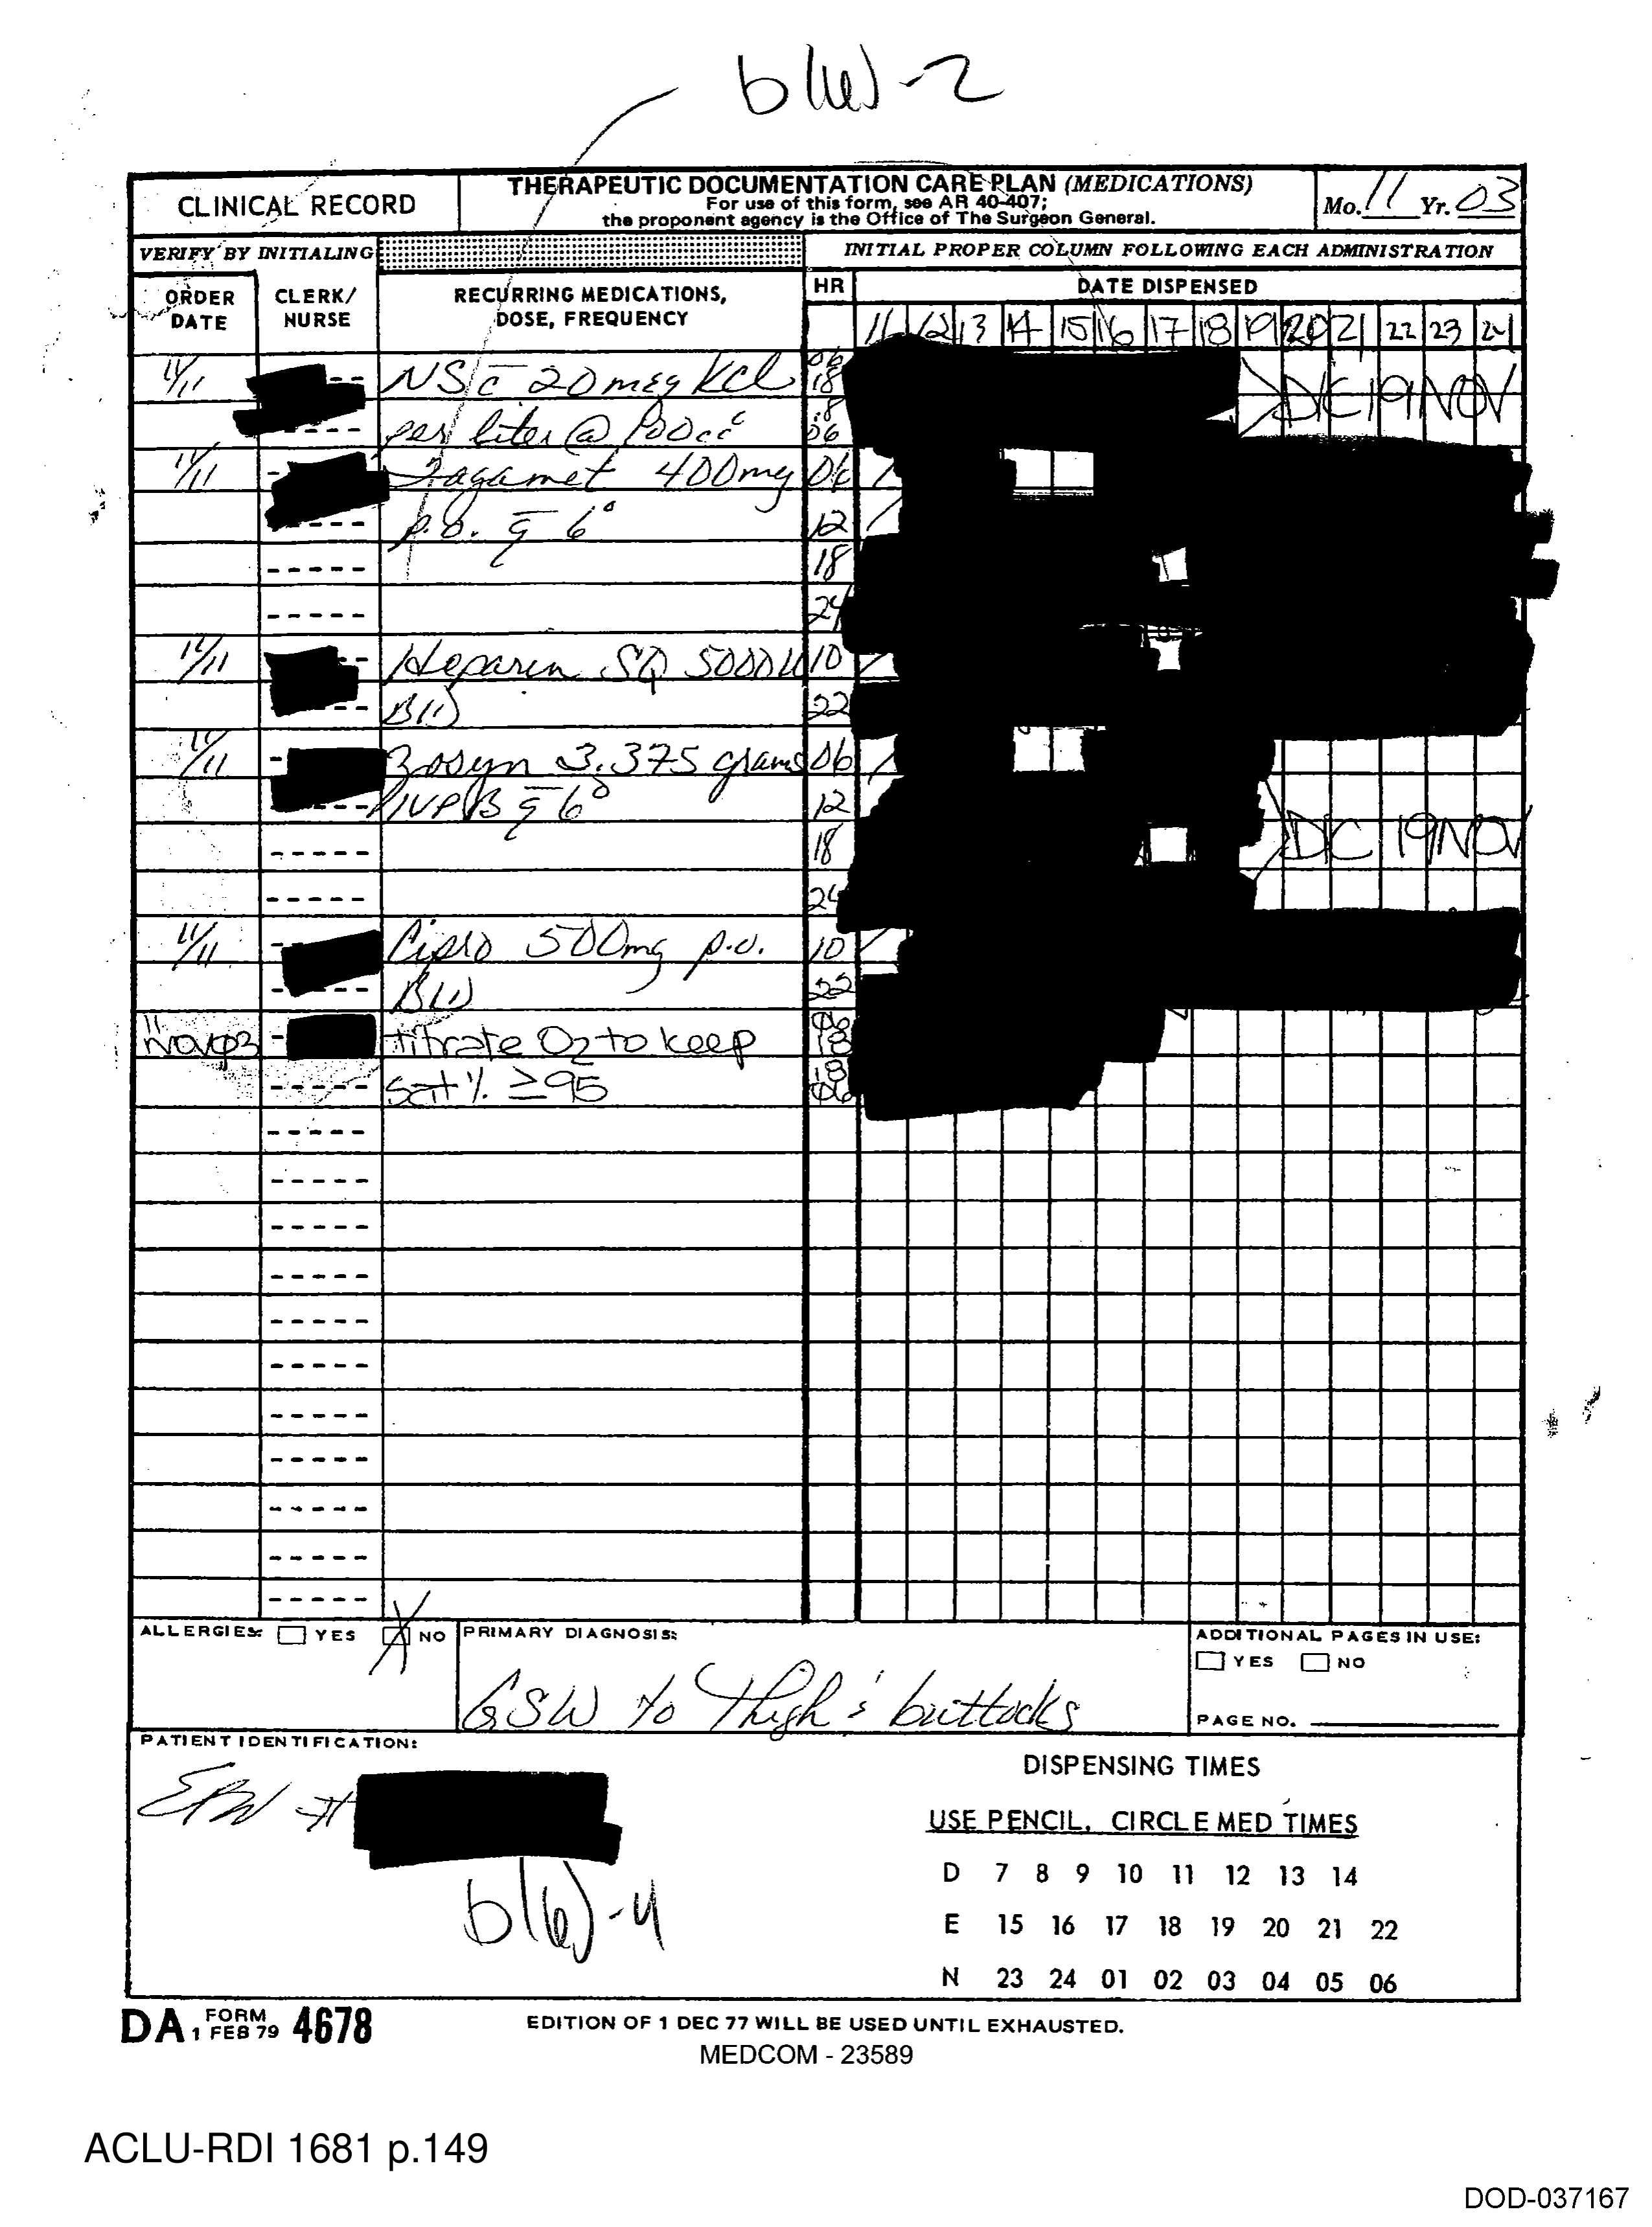 b(6)-2
CLINICAL RECORD
THERAPEUTIC DOCUMENTATION CARE PLAN (MEDICATIONS)
For use of this form, see AR 40-407;
the proponent agency is the Office of The Surgeon General.
Mo. 11 Yr. 03
VERIFY BY INITIALING
INITIAL PROPER COLUMN FOLLOWING EACH ADMINISTRATION
ORDER DATE
CLERK/ NURSE
RECURRING MEDICATIONS, DOSE, FREQUENCY
HR
DATE DISPENSED
11 12 13 14 15 16 17 18 19 20 21 22 23 24
11/11 NS c̄ 20 meq KCl 06 18
per liter @ 100cc 18 06
D/C 19 NOV
11/11 Tagamet 400mg 06
p.o. q̄ 6° 12
18
24
11/11 Heparin SQ 5000 U 10
BID 22
11/11 Zosyn 3.375 grams 06
IVPB q̄ 6° 12
18 D/C 19 NOV
24
11/11 Cipro 500mg p.o. 10
BID 22
11 Nov 03 titrate O2 to keep 06 18
sat % ≥95 18 06
ALLERGIES: YES X NO
PRIMARY DIAGNOSIS:
GSW to Thigh & buttocks
ADDITIONAL PAGES IN USE:
YES NO
PAGE NO.
PATIENT IDENTIFICATION:
EPW #
b(6)-4
DISPENSING TIMES
USE PENCIL, CIRCLE MED TIMES
D 7 8 9 10 11 12 13 14
E 15 16 17 18 19 20 21 22
N 23 24 01 02 03 04 05 06
DA FORM 1 FEB 79 4678
EDITION OF 1 DEC 77 WILL BE USED UNTIL EXHAUSTED.
MEDCOM - 23589
ACLU-RDI 1681 p.149
DOD-037167